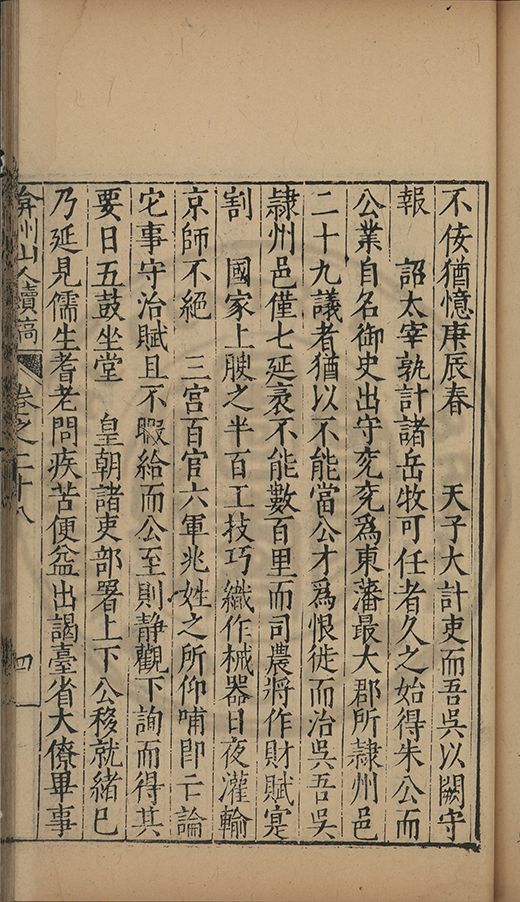 不佞猶憶庚辰春　　天子大計吏而吾吳以闕守
報　詔太宰孰計諸岳牧可任者久之始得朱公而
公業自名御史出守兖兖爲東藩最大郡所隷州邑
二十九議者猶以不能當公才爲恨徙而治吳吾吳
隷州邑僅七延袤不能數百里而司農將作財賦寔
割　國家上腴之半百工技巧織作械器日夜灌輸
京師不絕　三宫百官六軍兆姓之所仰哺卽亡論
它事守治賦且不暇給而公至則静觀下詢而得其
要日五鼓坐堂　皇朝諸吏部署上下公移就緒巳
乃延見儒生耆老問疾苦便益出謁臺省大僚畢事
弇州山人續稿　卷之二十八　四